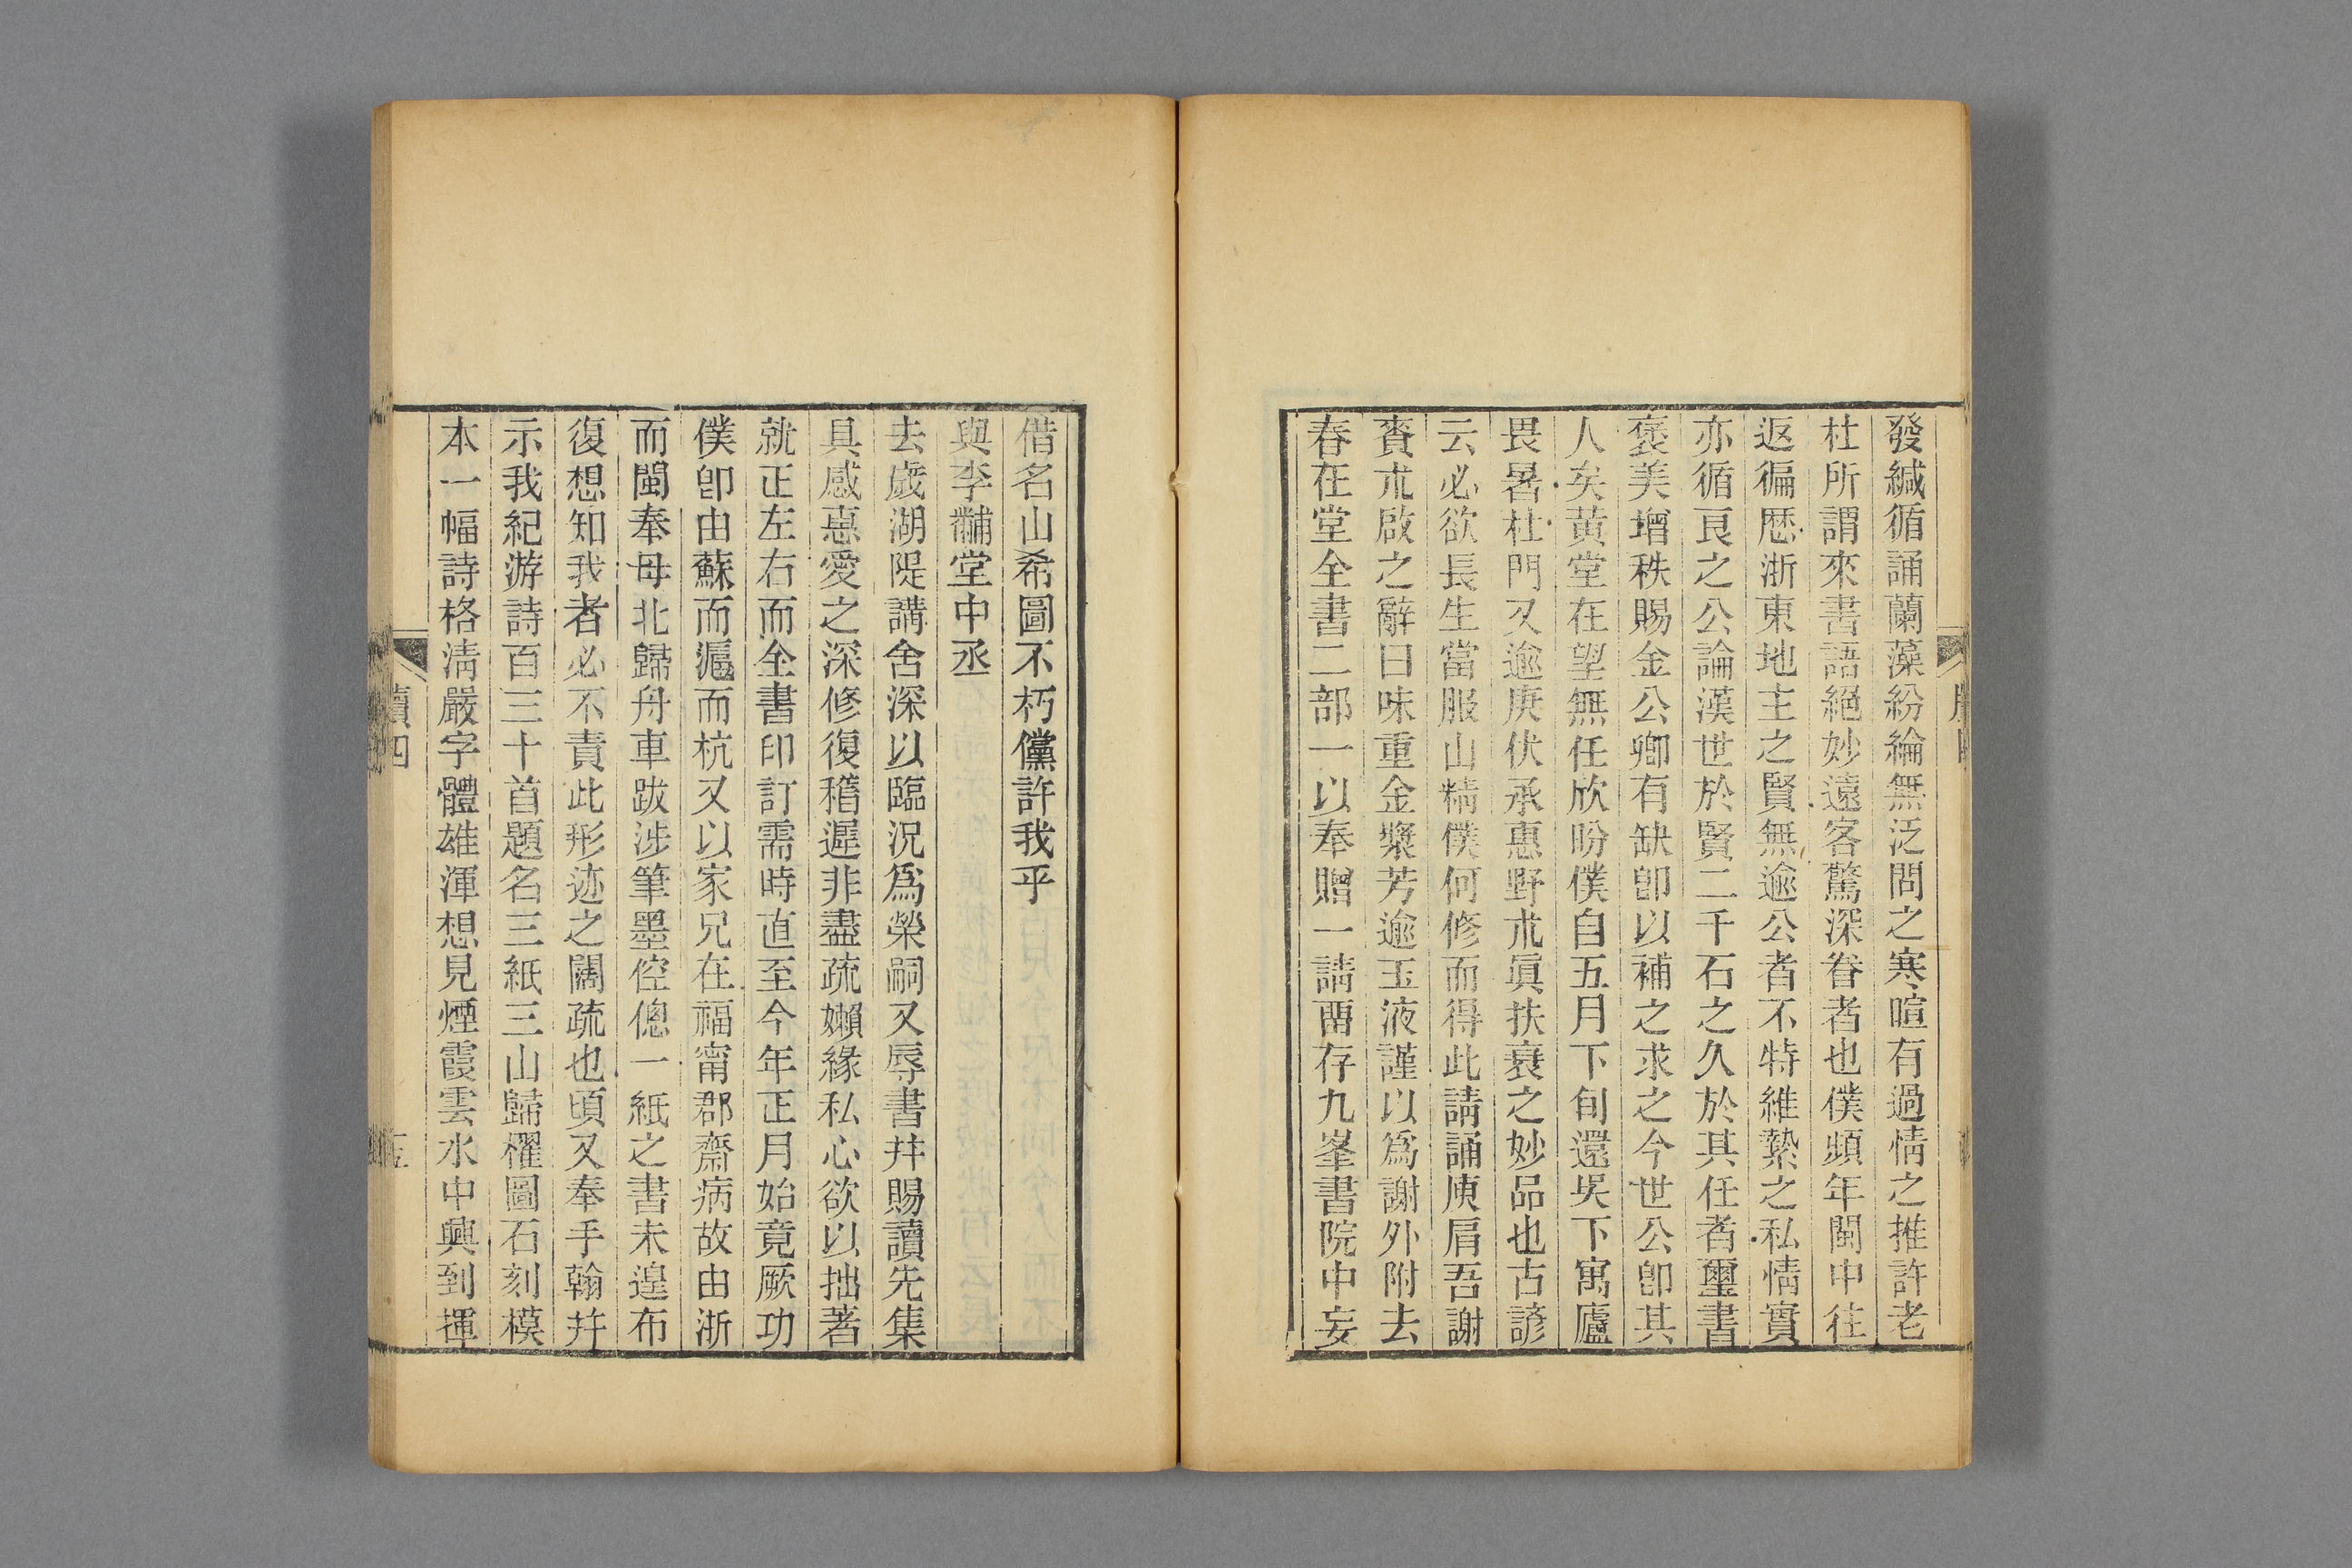 發緘循誦蘭藻紛綸無泛問之寒喧有過情之推許老
杜所謂來書語絕妙遠客驚深眷者也僕頻年閩中往
返徧歷浙東地主之賢無逾公者不特維縶之私情實
亦循良之公論漢世於賢二千石之久於其任者璽書
褒美增秩賜金公卿有缺卽以補之求之今世公卽其
人矣黃堂在望無任欣盼僕自五月下旬還吳下寓廬
畏暑杜門又逾庚伏承惠野朮眞扶衰之妙品也古諺
云必欲長生當服山精僕何修而得此請誦庾肩吾謝
賚朮啟之辭曰味重金漿芳逾玉液謹以爲謝外附去
春在堂全書二部一以奉贈一請畱存九峯書院中妄
借名山希圖不朽儻許我乎
與李黼堂中丞
去歲湖隄講舍深以臨況爲榮嗣又辱書幷賜讀先集
具感惠愛之深修復稽遲非盡疏嬾緣私心欲以拙著
就正左右而全書印訂需時直至今年正月始竟厥功
僕卽由蘇而滬而杭又以家兄在福甯郡齋病故由浙
而閩奉母北歸舟車跋涉筆墨倥傯一紙之書未遑布
復想知我者必不責此形迹之闊疏也頃又奉手翰幷
示我紀游詩百三十首題名三紙三山歸櫂圖石刻模
本一幅詩格淸嚴字體雄渾想見煙霞雲水中興到揮